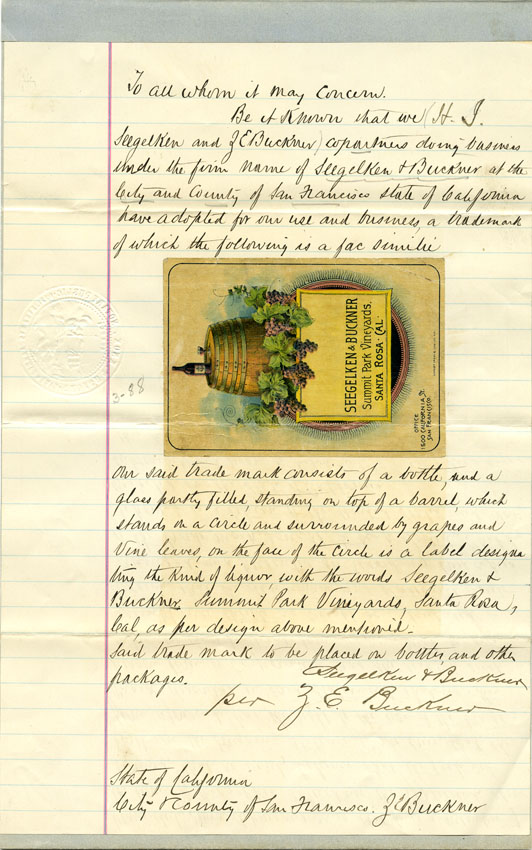 To all whom it may concern.
Be it Known that we (H. J.
Seegelken and Z E Buckner) copartners doing business
under the firm name of Seegelken & Buckner at the
City and County of San Francisco state of California
have adopted for our use and business, a trademark
of which the following is a fac simile
SEEGELKEN & BUCKNER
Summit Park Vineyards.
SANTA ROSA · CAL·
OFFICE
1600 CALIFORNIA ST.
SAN FRANCISCO.
3-88
Our said trade mark consists of a bottle, and a
glass partly filled, standing on top of a barrel, which
stands on a circle and surrounded by grapes and
Vine leaves, on the face of the circle is a label designa
ting the Kind of liquor with the words Seegelken &
Buckner, Summit Park Vineyards, Santa Rosa,
Cal, as per design above mentioned.
Said trade mark to be placed on bottles, and other
packages.
Seegelken & Buckner
per Z. E. Buckner
State of California
City & County of San Francisco. Z E Buckner